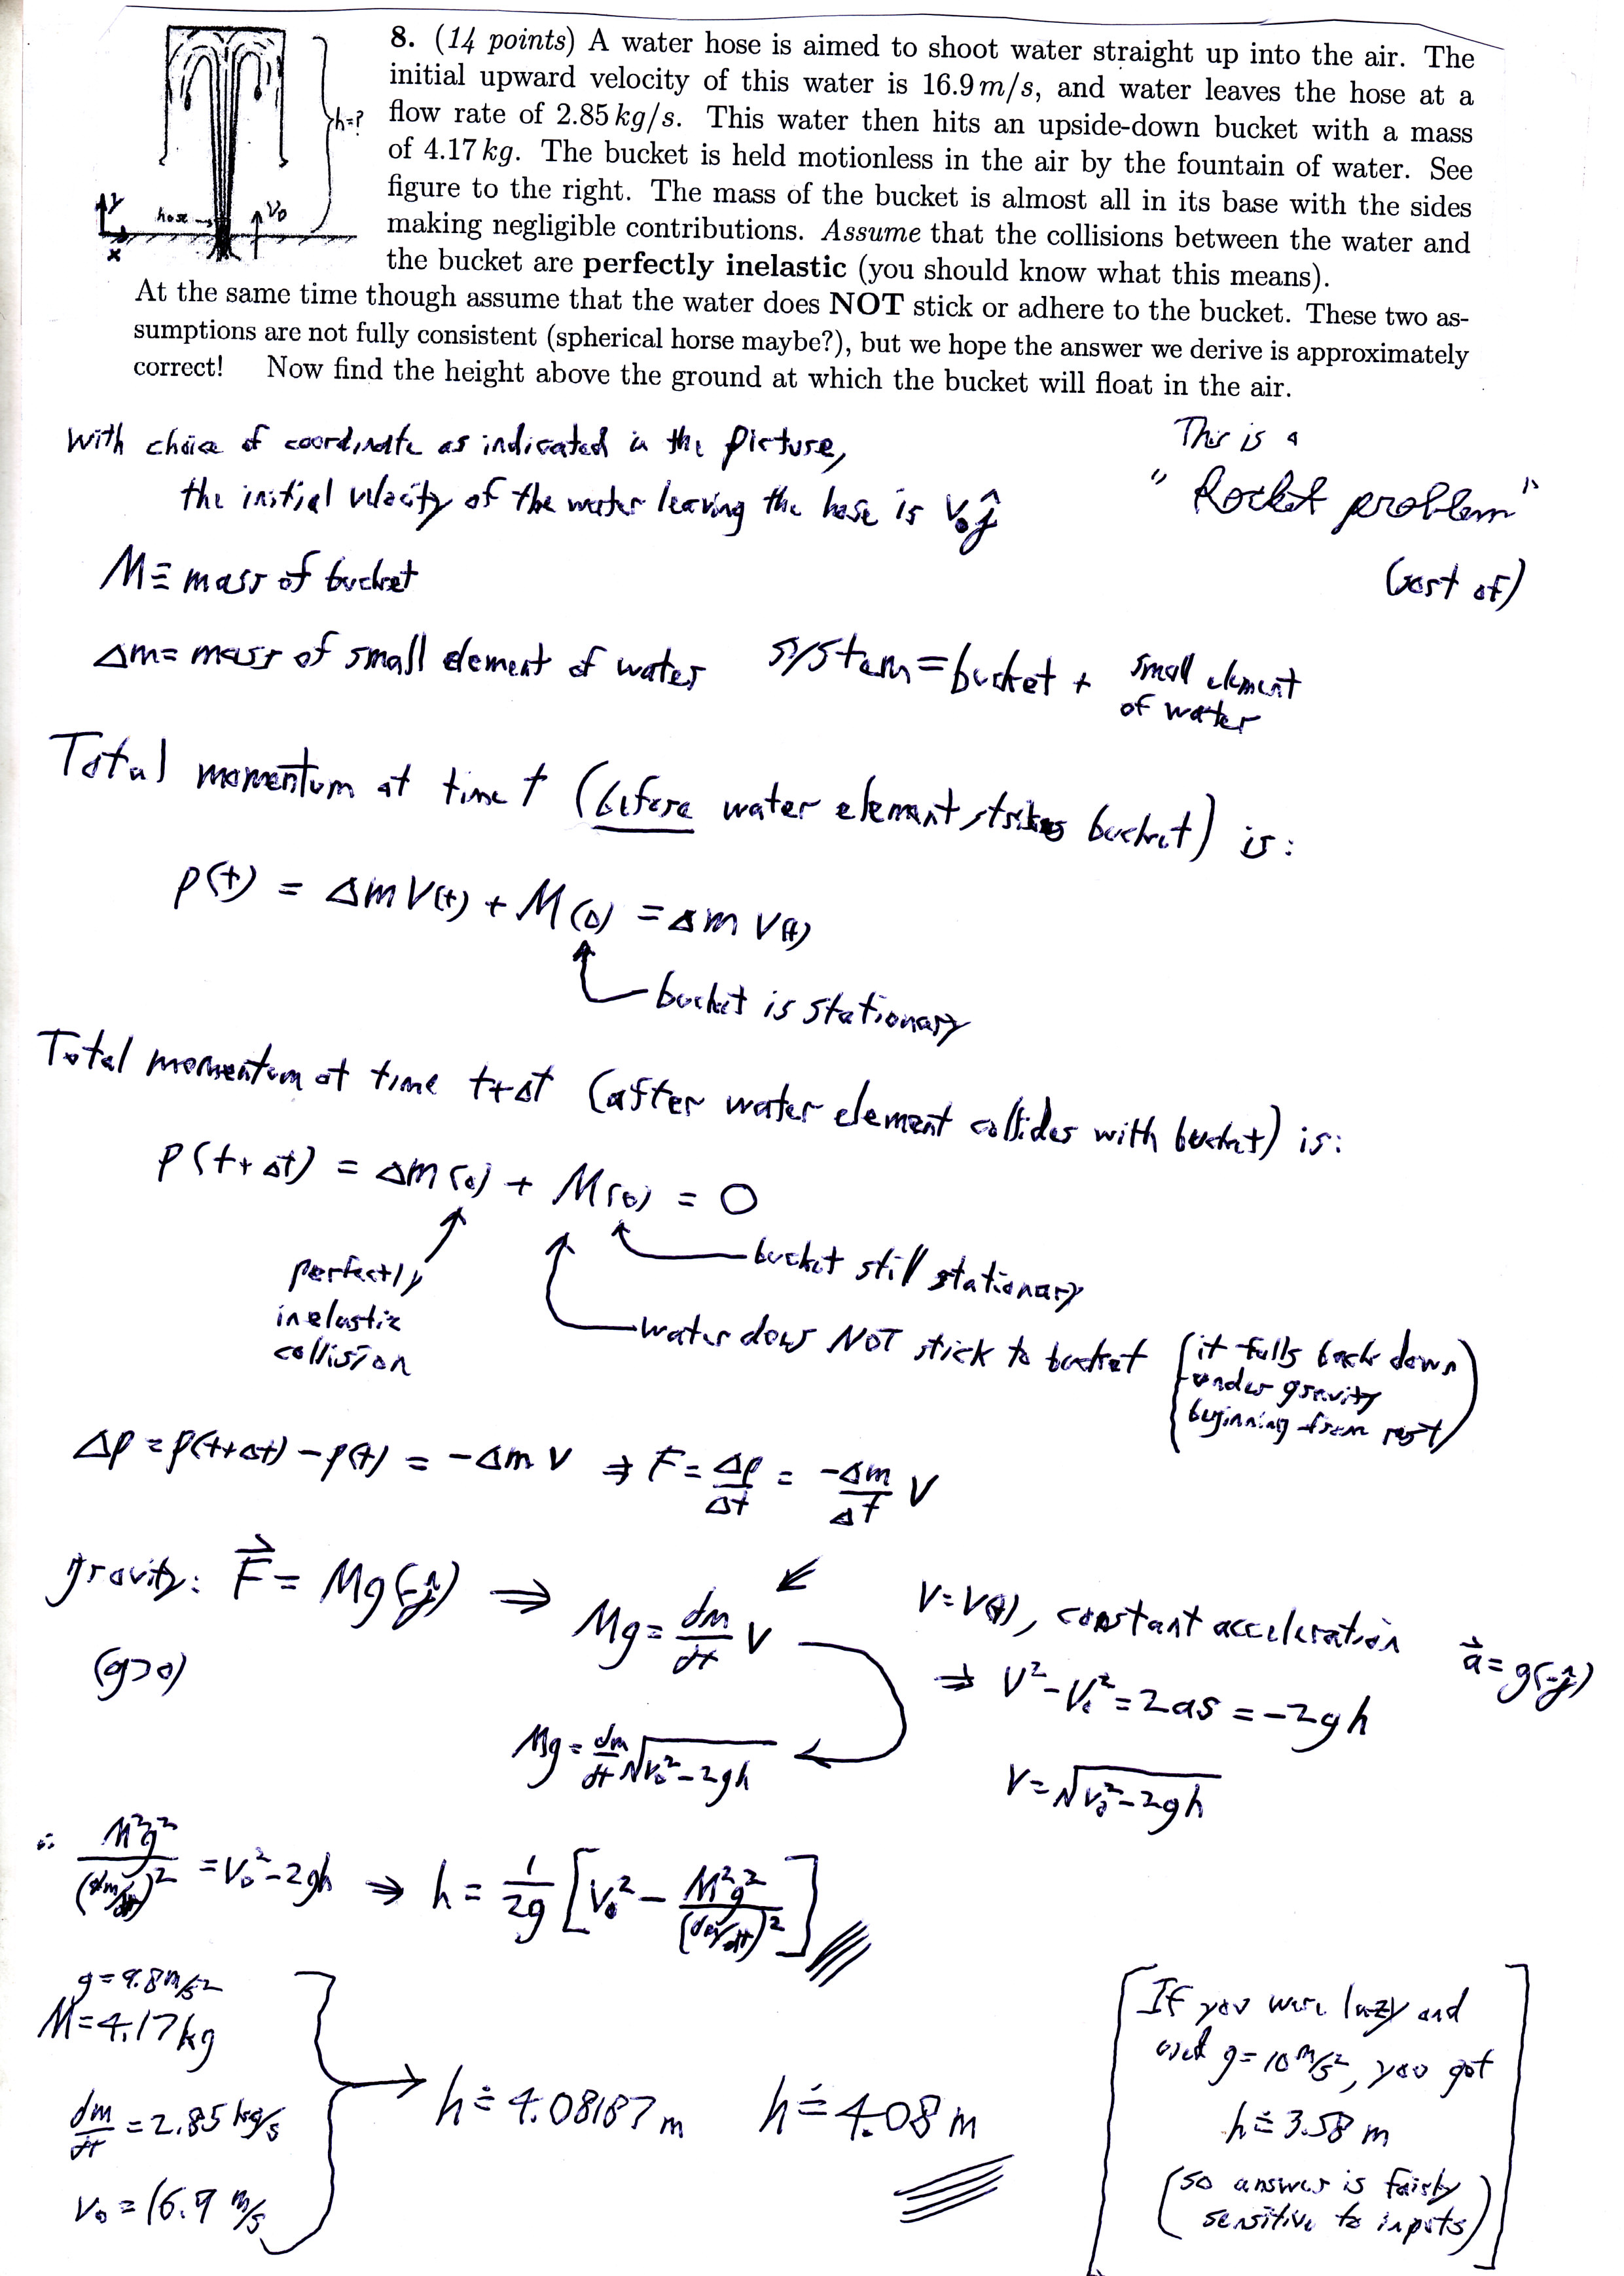 8. (14 points) A water hose is aimed to shoot water straight up into the air. The
initial upward velocity of this water is 16.9 m/s, and water leaves the hose at a
flow rate of 2.85 kg/s. This water then hits an upside-down bucket with a mass
of 4.17 kg. The bucket is held motionless in the air by the fountain of water. See
figure to the right. The mass of the bucket is almost all in its base with the sides
making negligible contributions. Assume that the collisions between the water and
the bucket are perfectly inelastic (you should know what this means).
At the same time though assume that the water does NOT stick or adhere to the bucket. These two as-
sumptions are not fully consistent (spherical horse maybe?), but we hope the answer we derive is approximately
correct! Now find the height above the ground at which the bucket will float in the air.
h=?
y
x
hose
V₀
With choice of coordinate as indicated in the picture,
the initial velocity of the water leaving the hose is V₀ĵ
This is a
"Rocket problem"
(sort of)
M ≡ mass of bucket
Δm = mass of small element of water
system = bucket + small element
of water
Total momentum at time t (before water element strikes bucket) is:
p(t) = Δm V(t) + M(0) = Δm V(t)
bucket is stationary
Total momentum at time t+Δt (after water element collides with bucket) is:
p(t+Δt) = Δm(0) + M(0) = 0
perfectly
inelastic
collision
bucket still stationary
water does NOT stick to bucket
(it falls back down
under gravity
beginning from rest)
Δp = p(t+Δt) - p(t) = -Δm V ⇒ F = Δp/Δt = -Δm/Δt V
gravity: F⃗ = Mg(-ĵ) ⇒ Mg = dm/dt V
(g>0)
V=V(t), constant acceleration a⃗ = g(-ĵ)
⇒ V² - V₀² = 2as = -2gh
Mg = dm/dt √(V₀² - 2gh)
V = √(V₀² - 2gh)
∴ M²g²/(dm/dt)² = V₀² - 2gh ⇒ h = 1/2g [V₀² - M²g²/(dm/dt)²]
g = 9.8 m/s²
M = 4.17 kg
dm/dt = 2.85 kg/s
V₀ = 16.9 m/s
h ≐ 4.08187 m
h ≐ 4.08 m
[If you were lazy and
used g = 10 m/s², you got
h ≐ 3.58 m
(so answer is fairly
sensitive to inputs)]